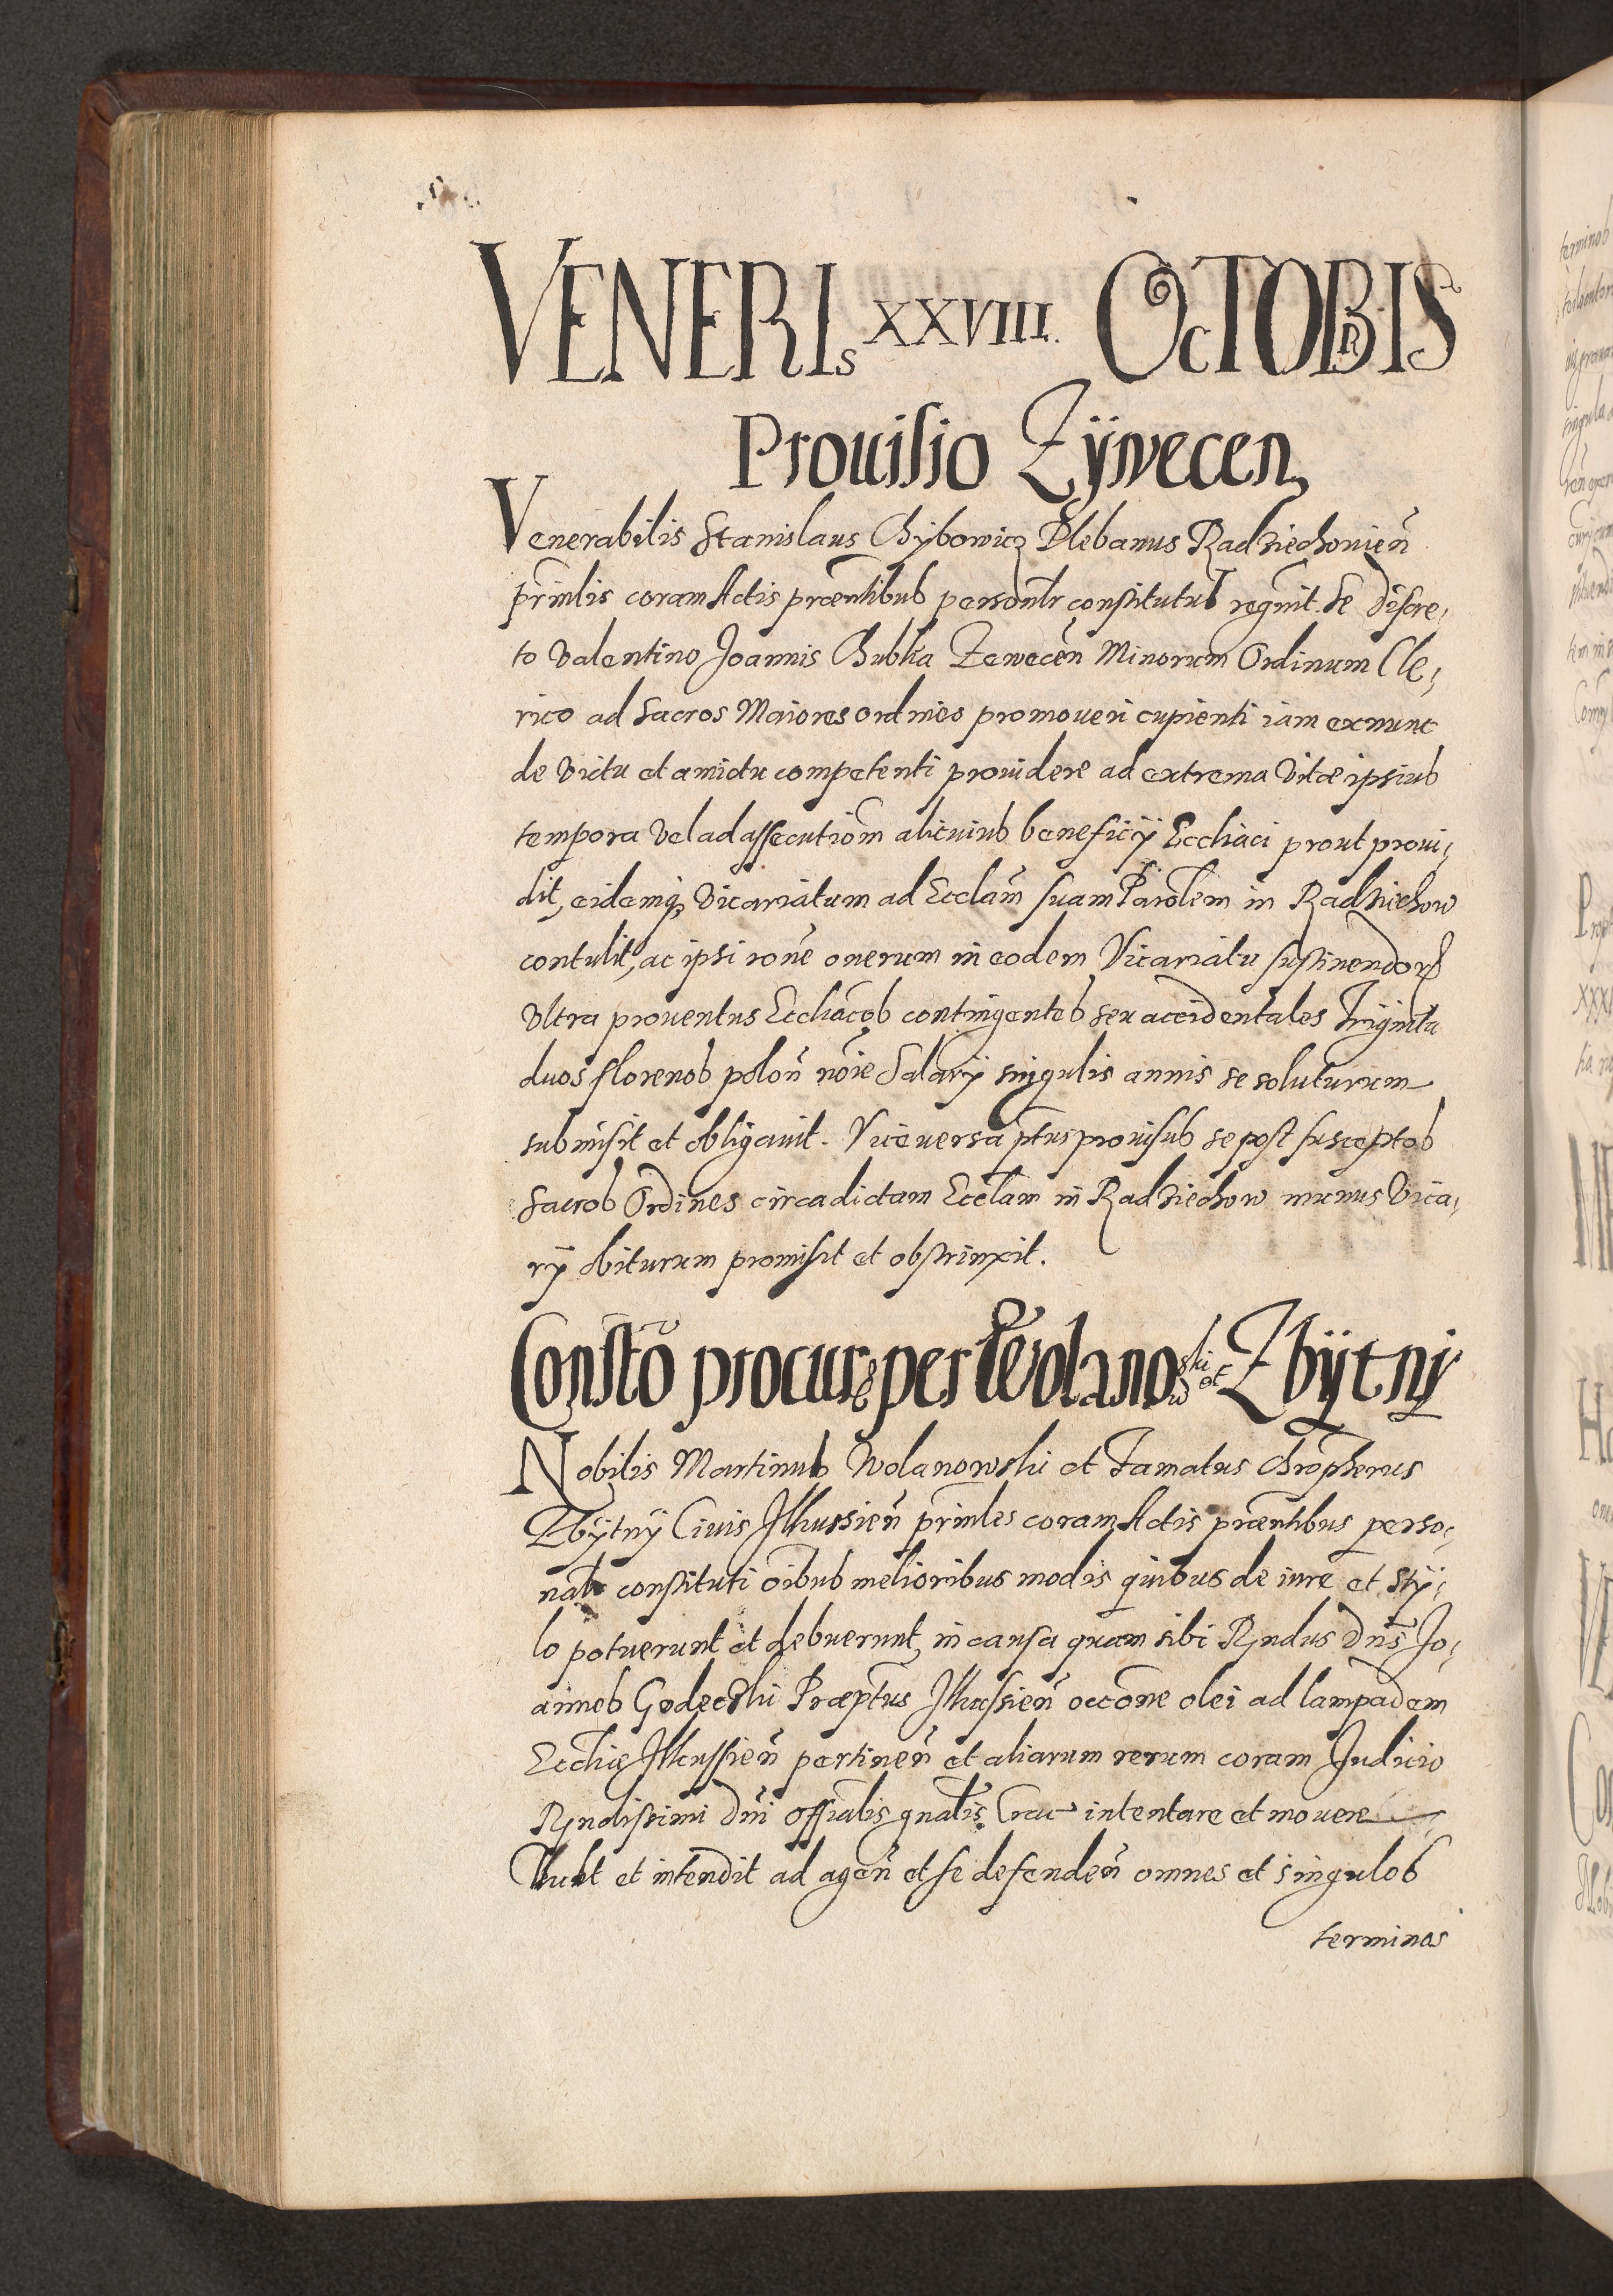 VENERIs XXVIII. OcTOBRIS
Prouisio Zÿwecen
Venerabilis Stanislaus Chÿbowicz Plebanus Radziechouieñ
prñtis coram Actis præntibus personlr constitutus regnit. Se discre,
to Valentino Joannis Chubka Zeweceñ Minorum Ordinum Cle,
rico ad Sacros Maiores ordines promoueri cupienti iam exnunc
de Victu et amictu competenti prouidere ad extrema Vitæ ipsius
tempora Vel ad assecutiom alicuius beneficÿ Eccliaci prout proui,
dit, eidemq Vicariatum ad Ecclam suam Parolem in Radziechow
contulit, ac ipsi rone onerum in eodem Vicariatu sustinendor
Vltra prouentus Eccliacos contingentes seu accidentales Triginta
duos florenos poloñ noie Salarÿ singulis annis se soluturum
submisit et obligauit. Vice uersa ptus prouisus se post susceptos
Sacros Ordines circa dictam Ecclam in Radziechow munus Vica,
rÿ obiturum promisit et obstrinxit.
Constõ procur per Wolanowski et Zbÿtnÿ
Nobilis Martinus Wolanowski et Famatus Chropherus
Zbÿtnÿ Ciuis Ilkussieñ prñtes coram Actis præntibus perso,
nalr constituti oibus melioribus modis quibus de iure et stÿ,
lo potuerunt et debuerunt, in causa quam sibi Rndus Dns Jo,
annes Godecski Præptus Ilkussieñ occone olei ad lampadem
Eccliæ Ilkussieñ pertineñ et aliarum rerum coram Judicio
Rndissimi Dni Offialis gnalis Crac intentare et mouere
Vult et intendit ad ageñ et se defendeñ omnes et singulos
terminos